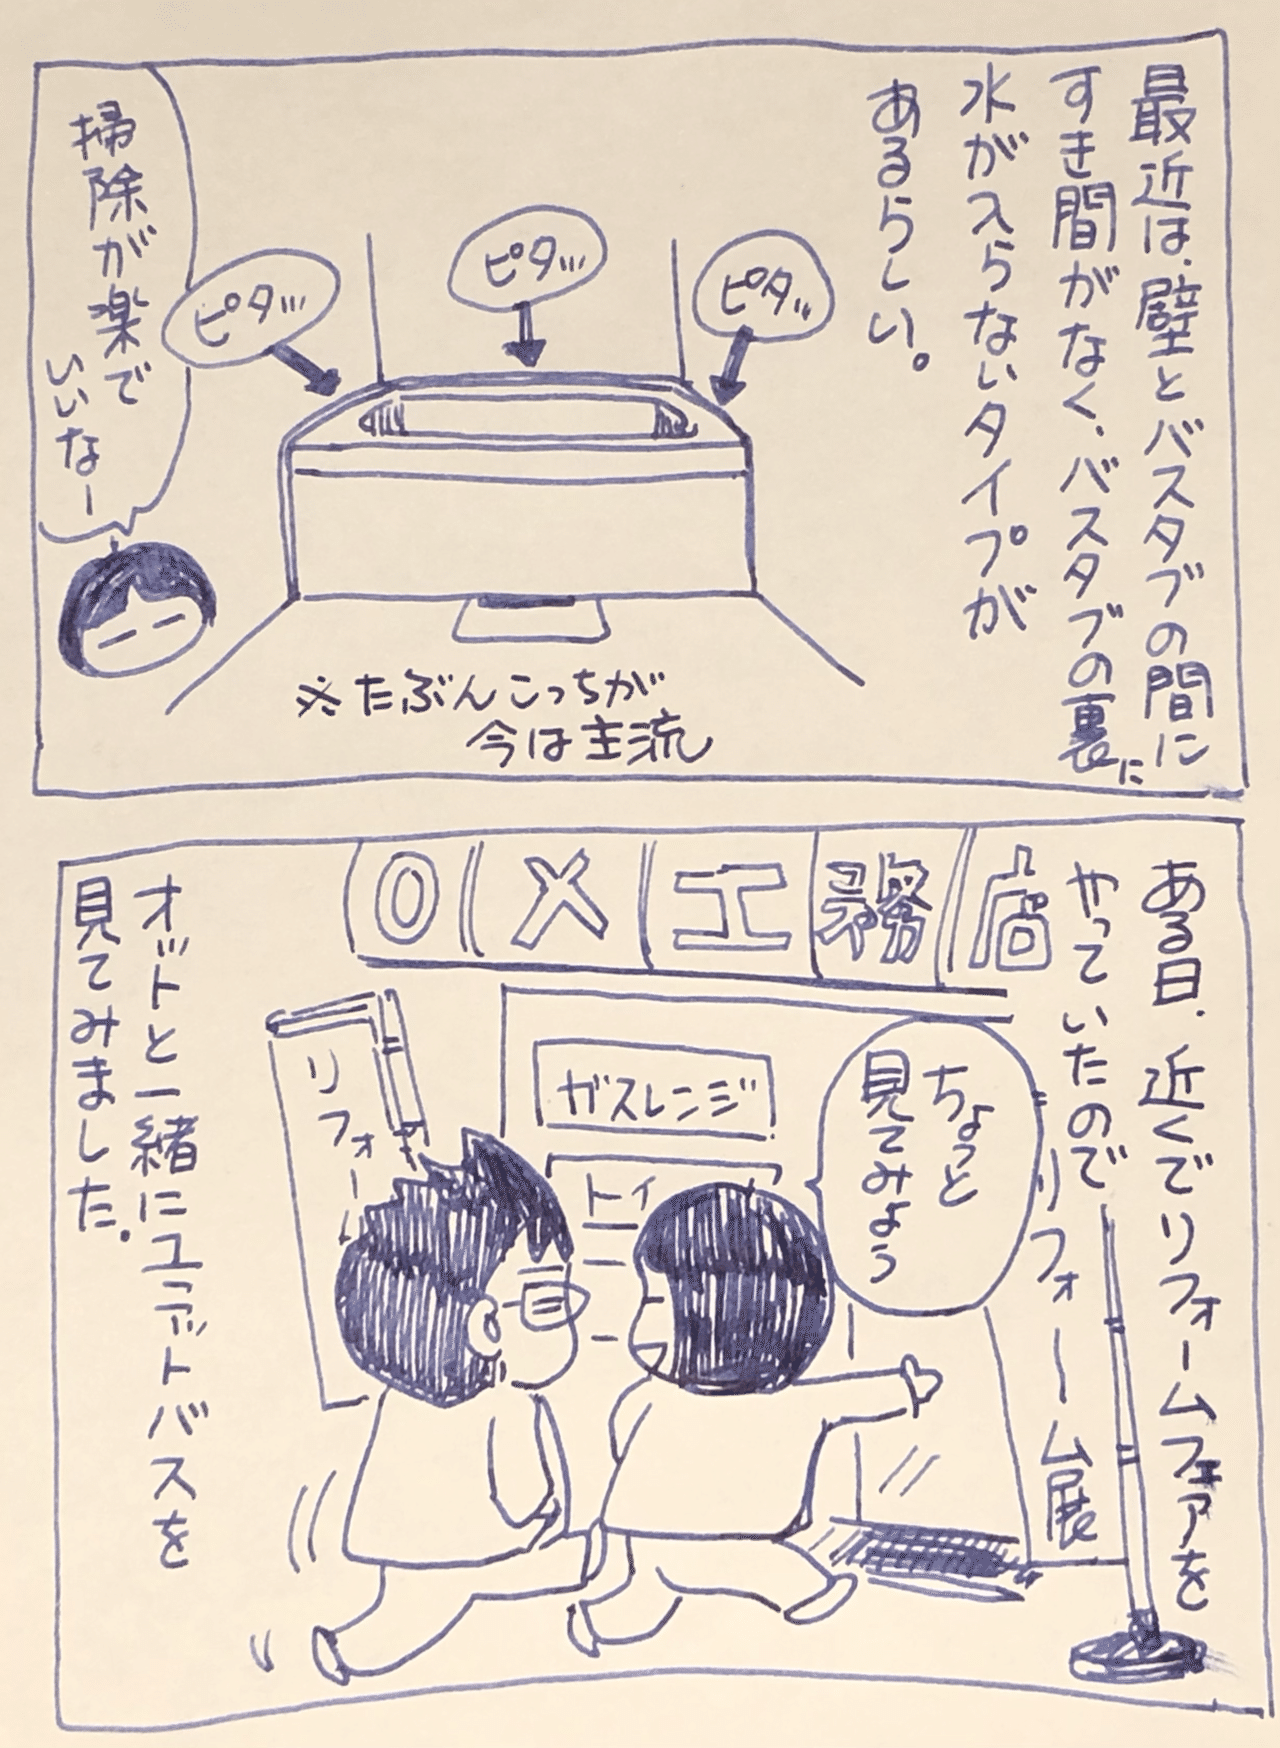 最近は、壁とバスタブの間に
すき間がなく、バスタブの裏に
水が入らないタイプが
あるらしい。
ピタッ
ピタッ
ピタッ
掃除が楽で
いいなー
※たぶんこっちが
今は主流
ある日、近くでリフォームフェアを
やっていたので
〇×工務店
リフォーム展
ちょっと
見てみよう
ガスレンジ
トイ
リフォー
オットと一緒にユニットバスを
見てみました。